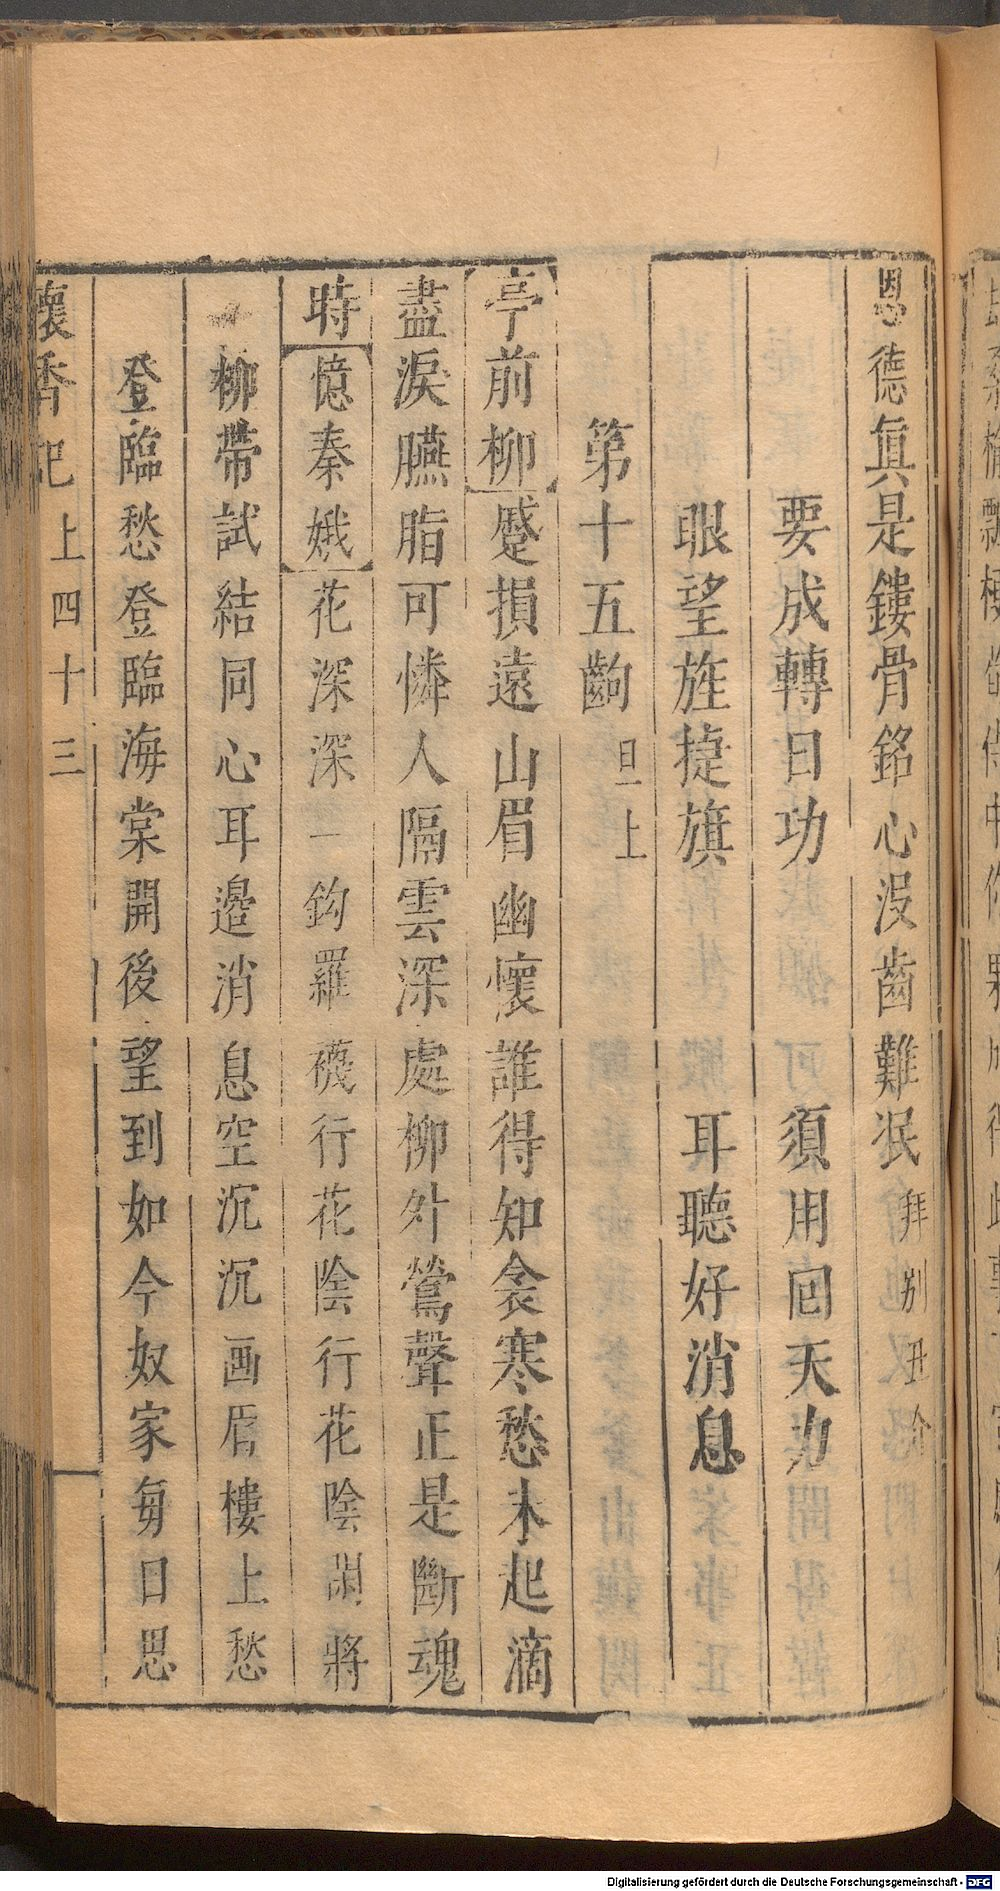 恩德眞是鏤骨銘心沒齒難泯拜别丑介
要成轉日功 須用囘天力
眼望旌捷旗 耳聽好消息
第十五齣 旦上
亭前柳蹙損遠山眉幽懷誰得知衾寒愁未起滴
盡淚臙脂可憐人隔雲深處柳外鶯聲正是斷魂
時憶秦娥花深深一鈎羅襪行花陰行花陰閑將
柳帶試結同心耳邊消息空沉沉画眉樓上愁
登臨愁登臨海棠開後望到如今奴家每日思
懷香記上四十三
Digitalisierung gefördert durch die Deutsche Forschungsgemeinschaft - DFG